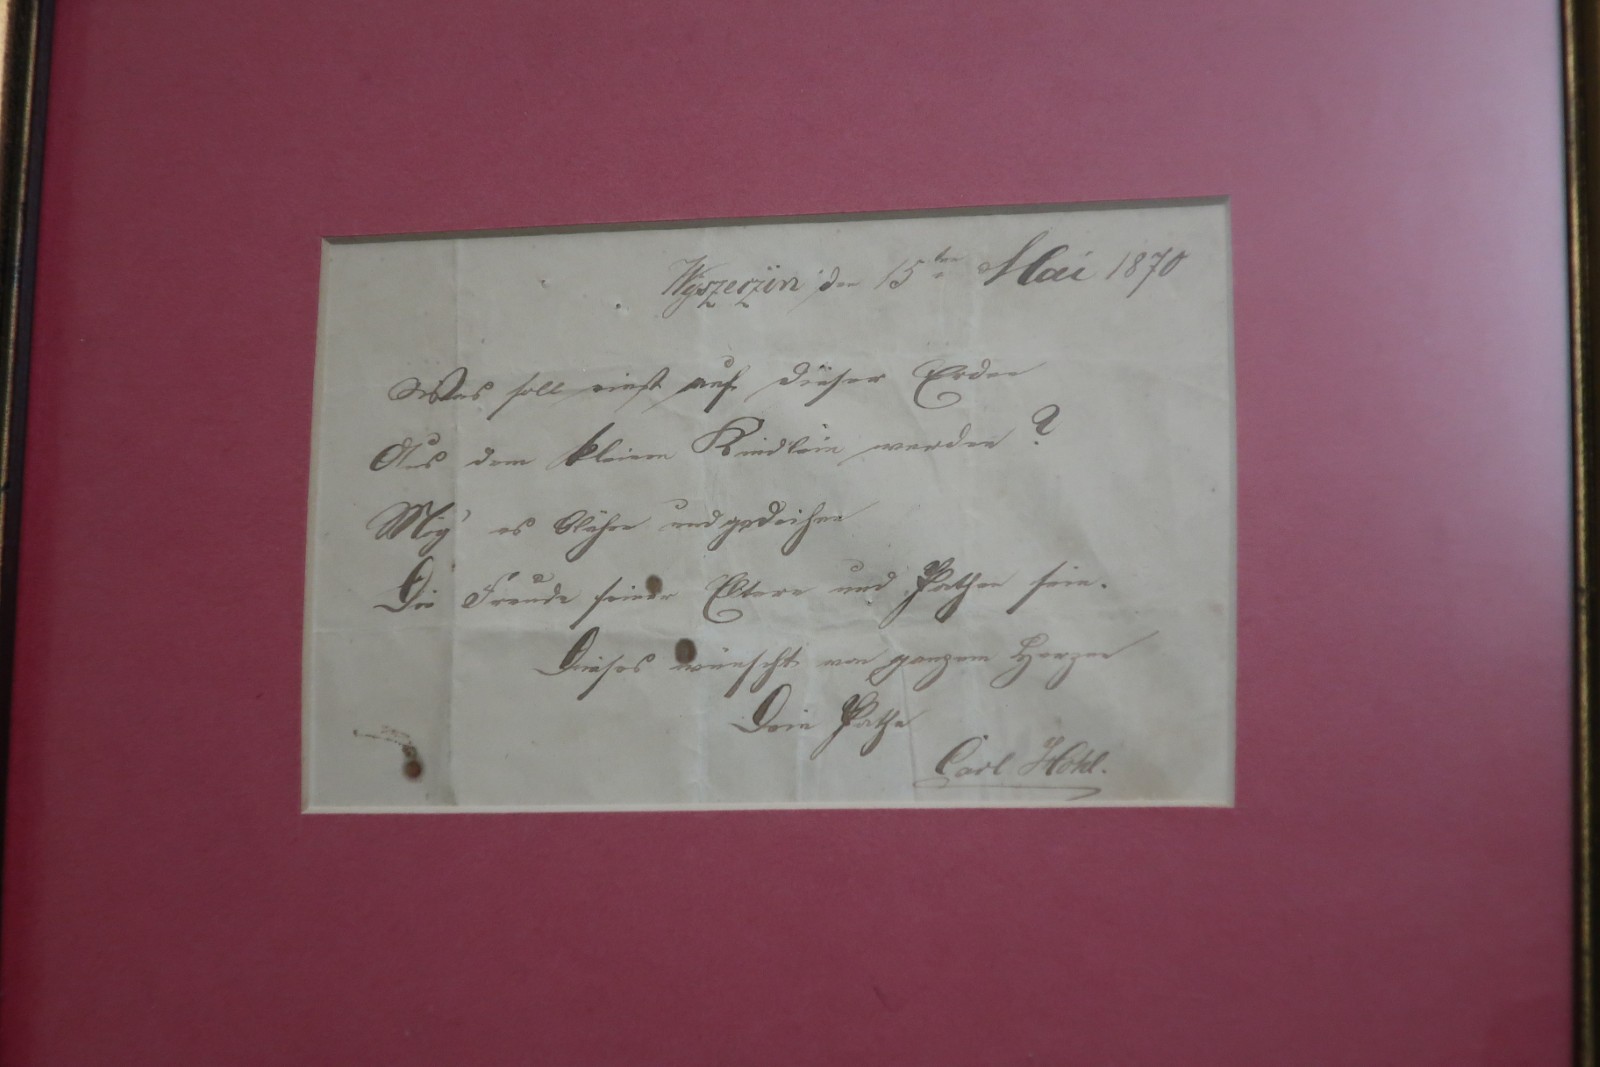 Wyszeczin den 15ten Mai 1870
Was soll einst auf dieser Erden
Aus dem kleinen Kindlein werden?
Mög' es blühen und gedeihen
Die Freude seiner Eltern und Pathen sein.
Dieses wünscht von ganzem Herzen
Dein Pathe
Carl Höhl.